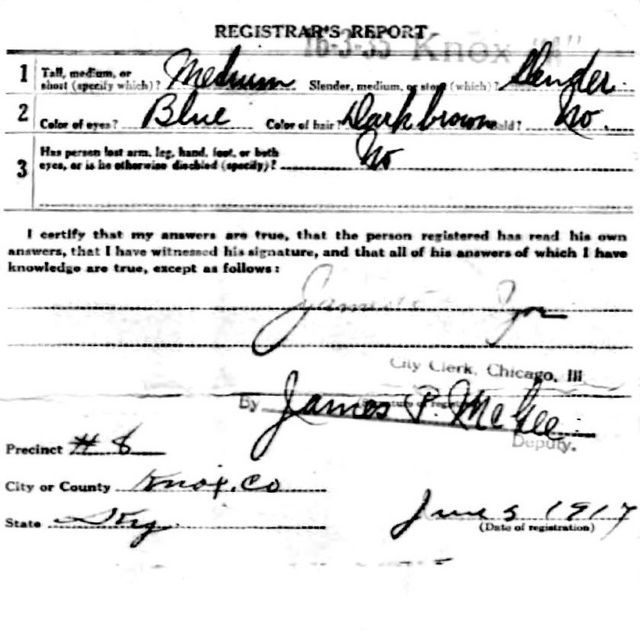 REGISTRAR'S REPORT
16-3-35 Knox "A"
1 Tall, medium, or short (specify which)? Medium Slender, medium, or stout (which)? Slender
2 Color of eyes? Blue Color of hair? Dark brown Bald? No.
3 Has person lost arm, leg, hand, foot, or both eyes, or is he otherwise disabled (specify)? No
I certify that my answers are true, that the person registered has read his own
answers, that I have witnessed his signature, and that all of his answers of which I have
knowledge are true, except as follows:
City Clerk, Chicago, Ill
By James P. McGee
Deputy.
Precinct # 8
City or County Knox. Co
State Ky.
June 5 1917
(Date of registration)